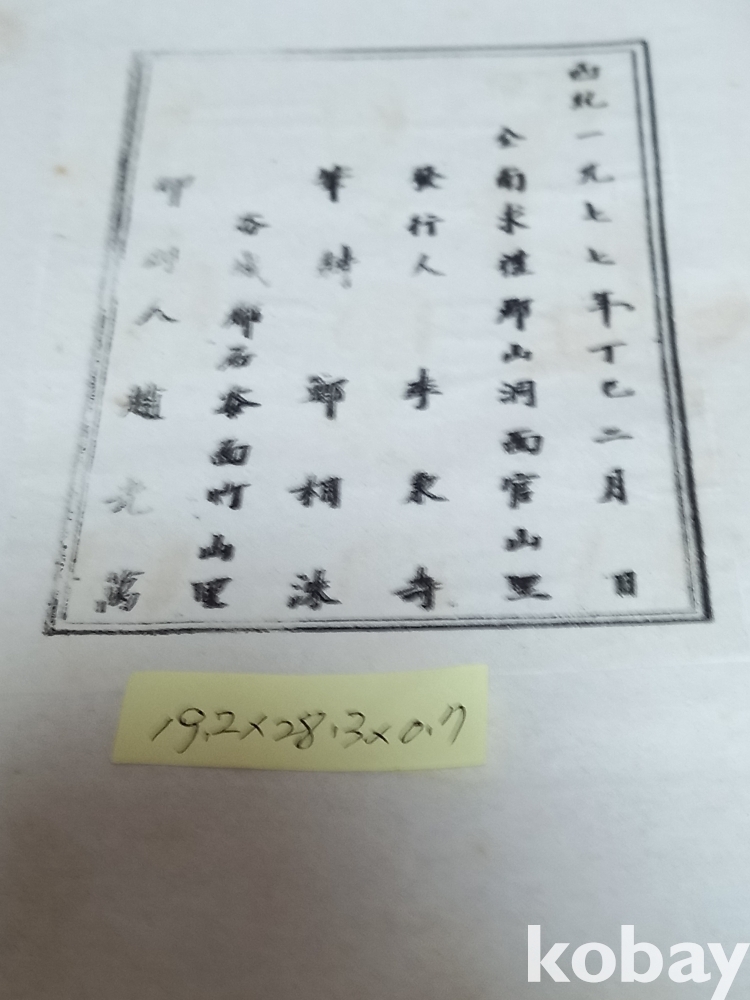 西紀一九七七年丁巳二月 日
全南求禮郡山洞面官山里
發行人 李
筆 相洙
谷城郡石谷面竹山里
印刷人 趙 萬
19.2×28.3×0.7
kobay